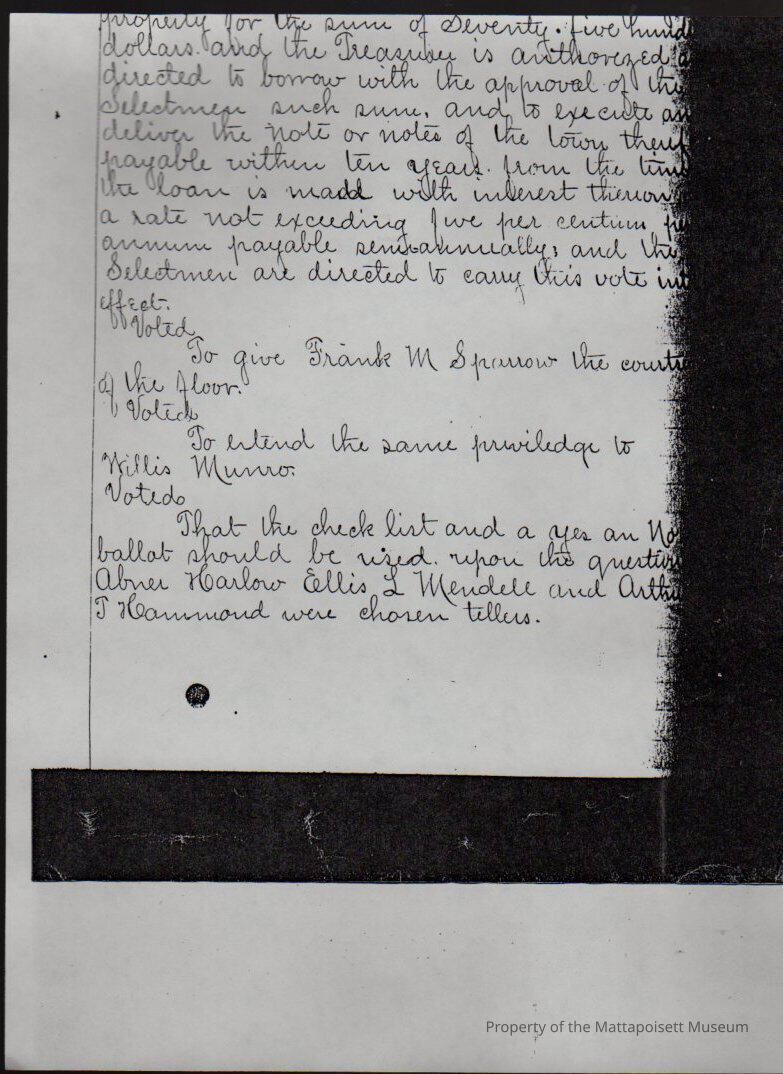 property for the sum of Seventy-five hund
dollars. and the Treasurer is authorezed a
directed to borrow with the approval of the
Selectmen such sum, and to execute an
deliver the note or notes of the town there
payable within ten years. from the time
the loan is made with interest thereon
a rate not exceeding five per centum, pe
annum payable semi-annually; and the
Selectmen are directed to carry this vote in
effect.
Voted
To give Frank M Sparrow the courte
of the floor.
Voted
To extend the same priviledge to
Willis Munro.
Voted
That the check list and a yes an No
ballot should be used. upon the question
Abner Harlow Ellis L Mendell and Arthu
T Hammond were chosen tellers.
Property of the Mattapoisett Museum